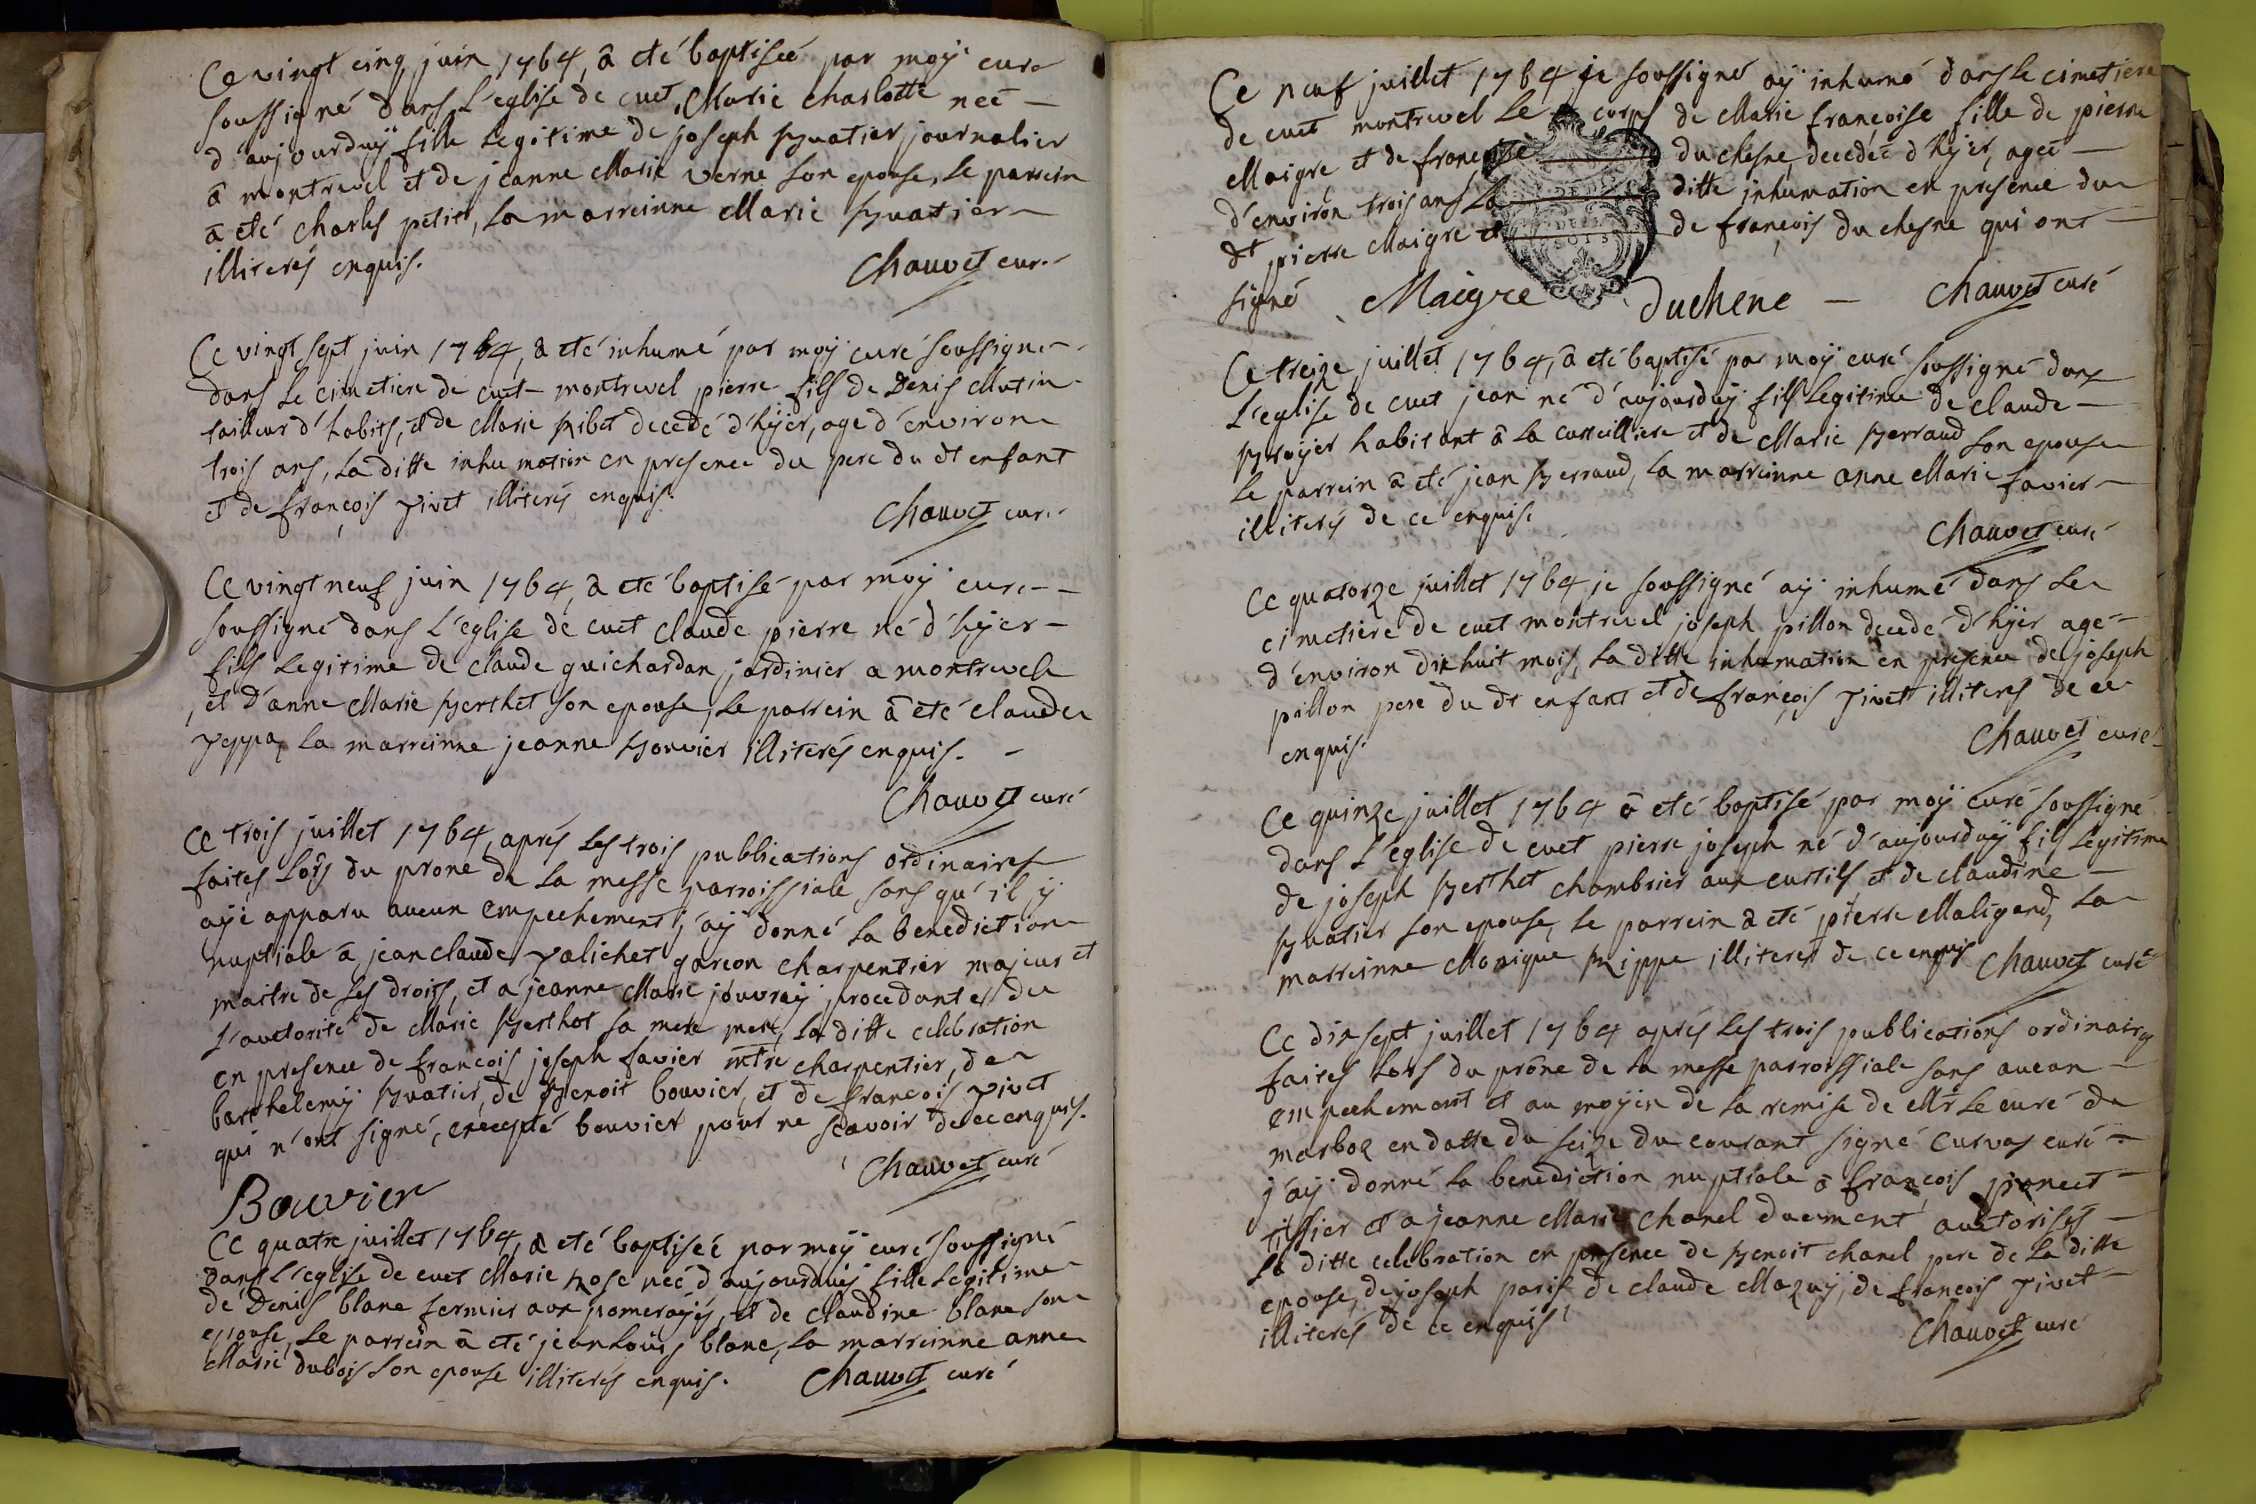 Ce vingt cinq juin 1764, â eté baptiseé par moÿ curé
soussigné dans L'eglise de cuet, Marie charlotte neé —
d'aujourduÿ fille Legitime de joseph Buatier journalier
â montrevel et de jeanne Marie verne son epouse, Le parrein
â eté charles petit, La marreinne Marie Buatier
illiterés enquis.
Chauvet curé
Ce vingt sept juin 1764, â eté inhumé par moÿ curé soussigné
dans Le cimetiere de cuet montrevel pierre fils de Denis Mutin
tailleur d'habits, et de Marie Ribet decedé d'hÿer, agé d'environ
trois ans, La ditte inhumation en presence du pere du dt enfant
et de françois vivet illiterés enquis.
Chauvet curé
Ce vingt neuf juin 1764, â eté baptisé par moÿ curé —
soussigné dans L'eglise de cuet claude pierre né d'hÿer —
fils Legitime de claude guichardan jardinier a montrevel
et d'anne Marie Berthet son epouse, Le parrein â eté claude
La marreinne jeanne Bouvier illiterés enquis. —
Chauvet curé
Ce trois juillet 1764, aprés Les trois publications ordinaires
faites Lors du prone de La messe parroissiale sans qu'il ÿ
aÿe apparu aucun empechement j'aÿ donné La benediction
nuptiale â jean claude valichet garçon charpentier majeur et
maitre de ses droits, et â jeanne Marie jouvraÿ procedante de
L'auctorité de Marie Berthet sa mere, La ditte celebration
en presence de françois joseph favier mtre charpentier, de
barthelemÿ Buatier, de Benoit bouvier, et de françois vivet
qui n'ont signé, excepté bouvier pour ne sçavoir de ce enquis.
Chauvet curé
Bouvier
Ce quatre juillet 1764, â eté baptiseé par moÿ curé soussigné
dans L'eglise de cuet Marie Rose neé d'aujourduÿ fille Legitime
de Denis blanc fermier aux pomeraÿes, et de claudine blanc son
epouse, Le parrein â eté jean Loüis blanc, La marreinne anne
Marie dubois son epouse illiterés enquis. Chauvet curé
Ce neuf juillet 1764 je soussigné aÿ inhumé dans Le cimetiere
de cuet montrevel Le corps de Marie françoise fille de pierre
Maigre et de françoise — du chesne decedeé d'hÿer, ageé —
d'environ trois ans La — ditte inhumation en presence du
dt pierre Maigre et — de françois du chesne qui ont —
signé Maigre duchene — Chauvet curé
Ce treize juillet 1764, â eté baptisé par moÿ curé soussigné dans
L'eglise de cuet jean né d'aujourduÿ fils Legitime de claude —
Broÿer habitant â La curteilliere et de Marie Perraud son epouse
Le parrein â eté jean Perraud, La marreinne anne Marie favier —
illiterés de ce enquis.
Chauvet curé
Ce quatorze juillet 1764 je soussigné aÿ inhumé dans Le
cimetiere de cuet montrevel joseph pillon decedé d'hÿer agé —
d'environ dix huit mois, La ditte inhumation en presence de joseph
pillon pere du dt enfant et de françois vivet illiterés de ce
enquis.
Chauvet curé
Ce quinze juillet 1764 â eté baptisé par moÿ curé soussigné
dans L'eglise de cuet pierre joseph né d'aujourduÿ fils Legitime
de joseph Berthet chambrier aux curtils et de claudine —
Buatier son epouse, Le parrein â eté pierre Maligand, La
marreinne Monique Rippe illiterés de ce enquis Chauvet curé
Ce dix sept juillet 1764 aprés Les trois publications ordinaires
faites Lors du prône de La messe parroissiale sans aucun —
empechement et au moÿen de La remise de Mr Le curé de
marboz en datte du seize du courant signé curvas curé —
j'aÿ donné La benediction nuptiale â françois
tissier et a jeanne Marie chanel duement auctorisés —
La ditte celebration en presence de Benoit chanel pere de La ditte
epouse, de joseph paris de claude Mazuÿ, de françois vivet —
illiterés de ce enquis.
Chauvet curé